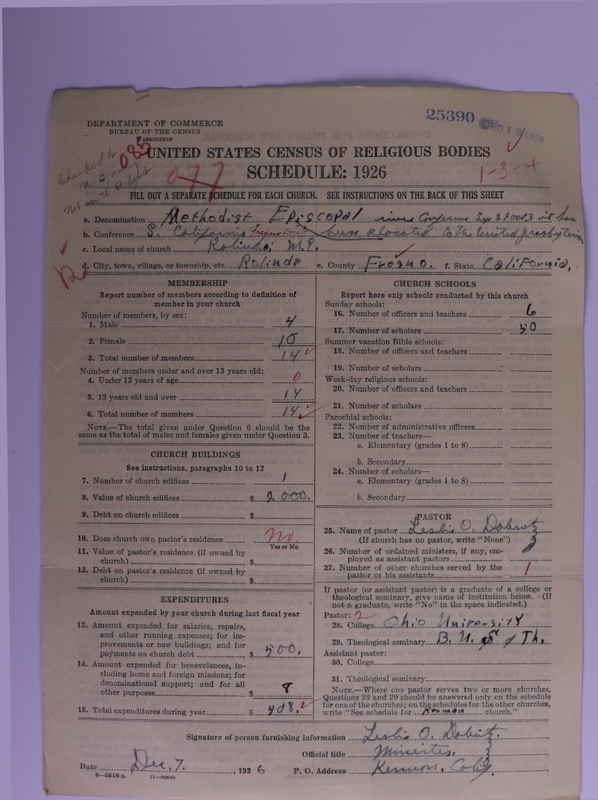 DEPARTMENT OF COMMERCE
BUREAU OF THE CENSUS
WASHINGTON
25390 DEC 12 1926
085
077
1-3-4
UNITED STATES CENSUS OF RELIGIOUS BODIES
SCHEDULE: 1926
FILL OUT A SEPARATE SCHEDULE FOR EACH CHURCH. SEE INSTRUCTIONS ON THE BACK OF THIS SHEET
a. Denomination Methodist Episcopal
b. Conference S. California been allocated to the United presbyterian
c. Local name of church Rolinda, M.E.
d. City, town, village, or township, etc. Rolinda e. County Fresno. f. State California,
MEMBERSHIP
Report number of members according to definition of member in your church
Number of members, by sex:
1. Male 4
2. Female 10
3. Total number of members 14
Number of members under and over 13 years old:
4. Under 13 years of age 0
5. 13 years old and over 14
6. Total number of members 14
NOTE.—The total given under Question 6 should be the same as the total of males and females given under Question 3.
CHURCH BUILDINGS
See instructions, paragraphs 10 to 12
7. Number of church edifices 1
8. Value of church edifices $ 2000.
9. Debt on church edifices $
10. Does church own pastor's residence? No.
Yes or No
11. Value of pastor's residence (if owned by church) $
12. Debt on pastor's residence (if owned by church) $
EXPENDITURES
Amount expended by your church during last fiscal year
13. Amount expended for salaries, repairs, and other running expenses; for improvements or new buildings; and for payments on church debt $ 500.
14. Amount expended for benevolences, including home and foreign missions; for denominational support; and for all other purposes $ 8
15. Total expenditures during year $ 508.
CHURCH SCHOOLS
Report here only schools conducted by this church
Sunday schools:
16. Number of officers and teachers 6
17. Number of scholars 50
Summer vacation Bible schools:
18. Number of officers and teachers
19. Number of scholars
Week-day religious schools:
20. Number of officers and teachers
21. Number of scholars
Parochial schools:
22. Number of administrative officers
23. Number of teachers—
a. Elementary (grades 1 to 8)
b. Secondary
24. Number of scholars—
a. Elementary (grades 1 to 8)
b. Secondary
PASTOR
25. Name of pastor Leslie O. Dobertz
(If church has no pastor, write "None")
26. Number of ordained ministers, if any, employed as assistant pastors
27. Number of other churches served by the pastor or his assistants 1
If pastor (or assistant pastor) is a graduate of a college or theological seminary, give name of institution below. (If not a graduate, write "No" in the space indicated.)
Pastor: 2
28. College Ohio University
29. Theological seminary B. U. S of Th.
Assistant pastor:
30. College
31. Theological seminary
NOTE.—Where one pastor serves two or more churches, Questions 28 and 29 should be answered only on the schedule for one of the churches; on the schedules for the other churches, write "See schedule for Kerman church."
Signature of person furnishing information Leslie O. Dobertz
Official title Minister.
Date Dec. 7., 1926 P. O. Address Kerman, Calif.